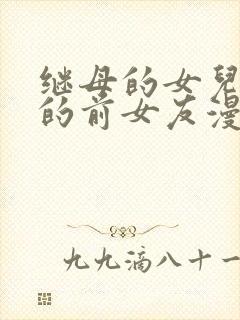 继母的女兒
的前女友漫
九九滴八十一